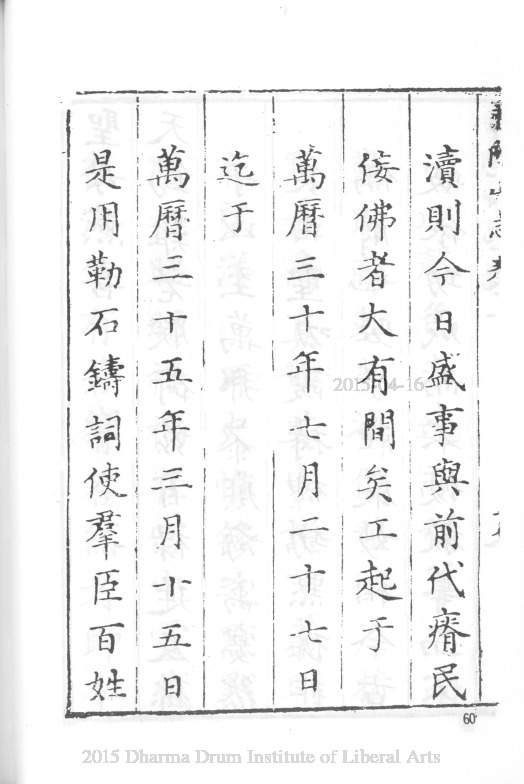 瀆則今日盛事與前代瘠民
佞佛者大有間矣工起于
萬曆三十年七月二十七日
迄于
萬曆三十五年三月十五日
是用勒石鑄詞使羣臣百姓
2015-04-16
60
2015 Dharma Drum Institute of Liberal Arts